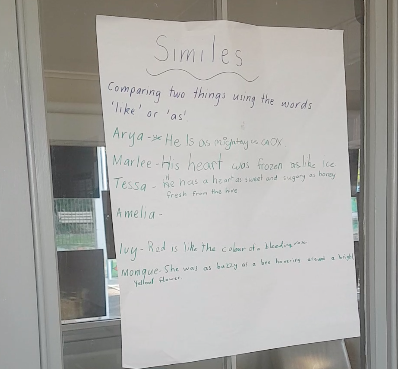 Similes
Comparing two things using the words
'like' or 'as'.
Arya - He is as mighty as an Ox
Marlee - His heart was frozen as like ice
Tessa - He has a heart as sweet and sugary as honey
fresh from the hive
Amelia -
Ivy - Red is like the colour of a bleeding
Monique - She was as buzzy as a bee hovering around a bright
Yellow flower